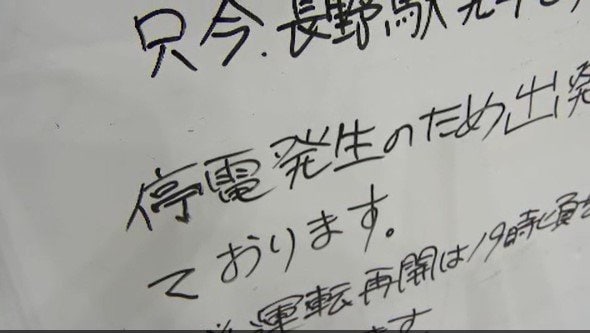 只今.長野駅
停電発生のため出発
ております。
運転再開は19時頃を
ます